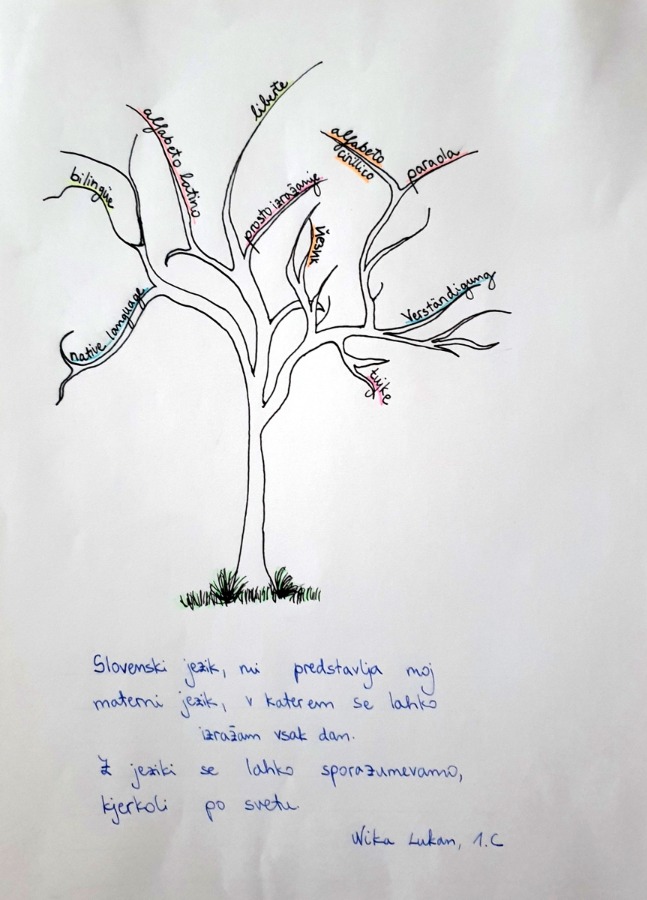 liberté
alfabeto latino
alfabeto
cirillico
paraola
bilingüe
prosto izražanje
језик
native language
Verständigung
tujke
Slovenski jezik, mi predstavlja moj
materni jezik, v katerem se lahko
izražam vsak dan.
Z jeziki se lahko sporazumevamo,
kjerkoli po svetu
Nika Lukan, 1.C